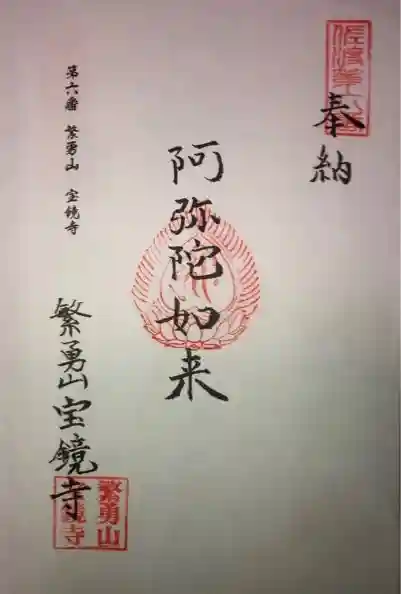 奉納
阿弥陀如来
第六番 繁勇山 宝鏡寺
繁勇山宝鏡寺
繁勇山
鏡寺